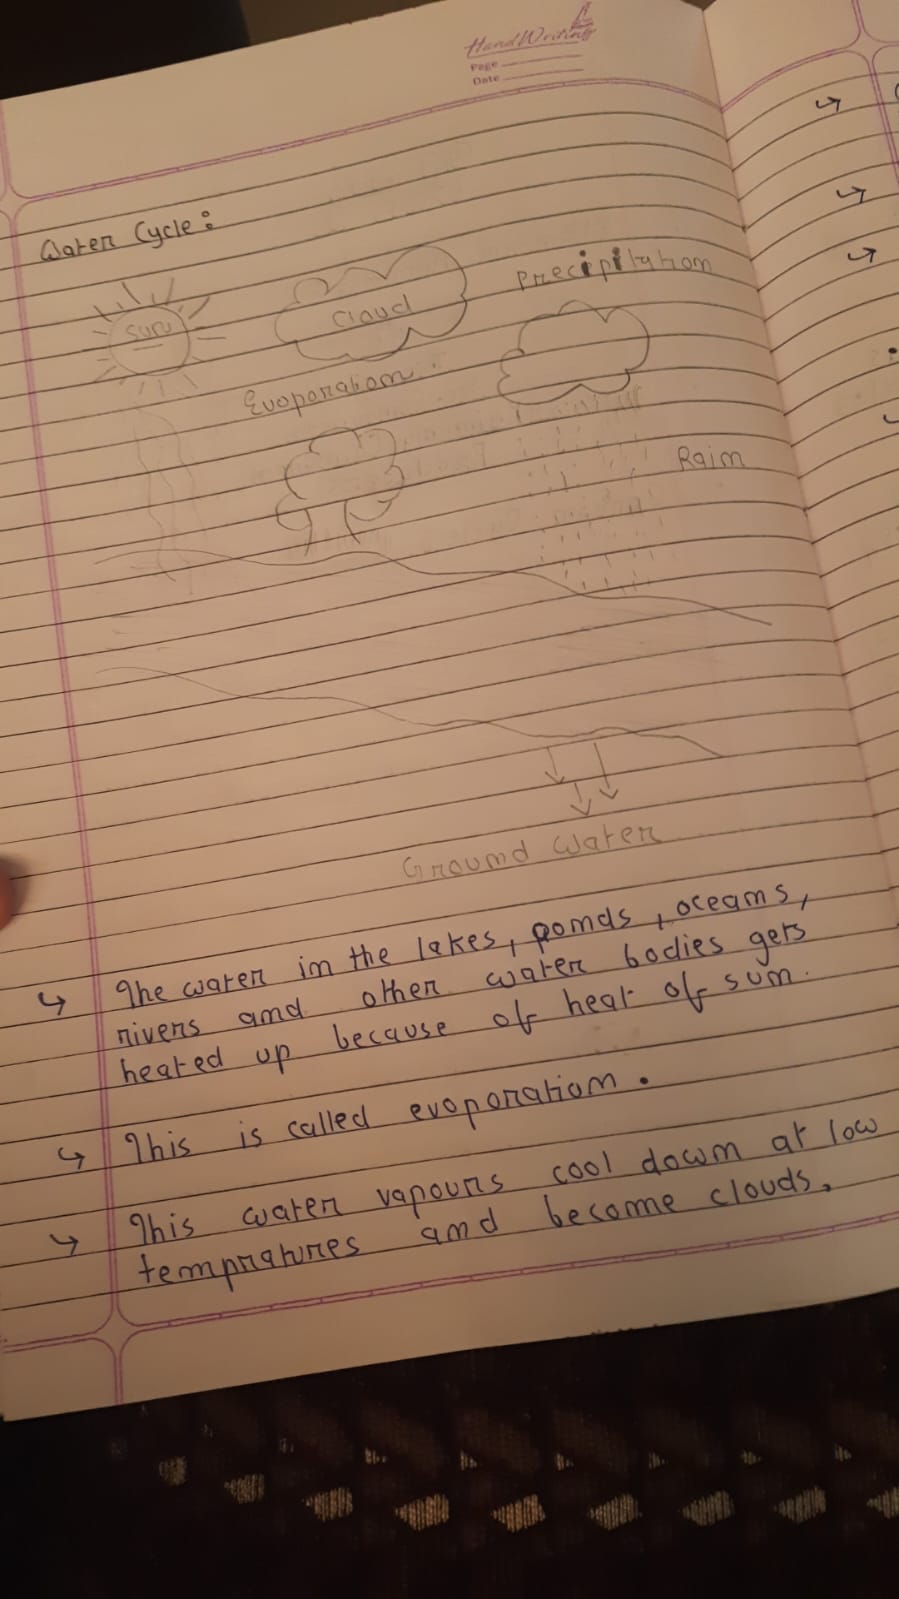 HandWriting
Page
Date
Water Cycle:
Sun
Cloud
Precipitation
Evoporation
Rain
Ground Water
↳ The water in the lakes, ponds, oceans,
rivers and other water bodies gets
heated up because of heat of sun.
↳ This is called evoporation.
↳ This water vapours cool down at low
tempratures and become clouds.